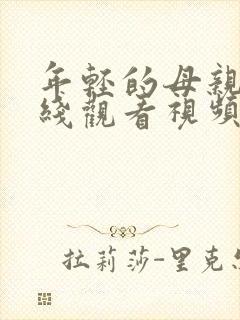 年轻的母親
綫觀看視頻
拉莉莎-里克